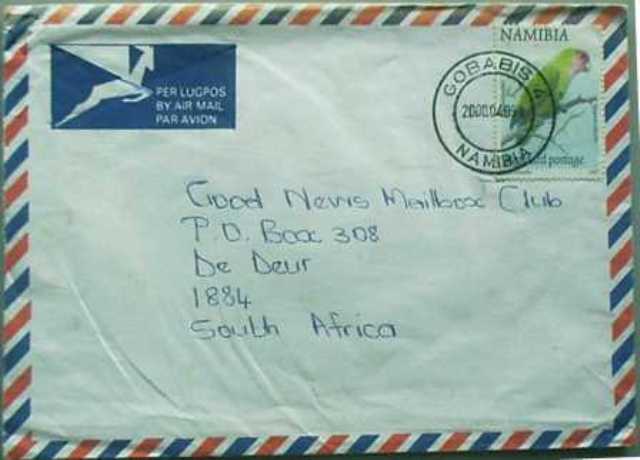 PER LUGPOS
BY AIR MAIL
PAR AVION
NAMIBIA
GOBABIS
NAMIBIA
postage
Good News Mailbox Club
P.O. Box 308
De Deur
1884
South Africa